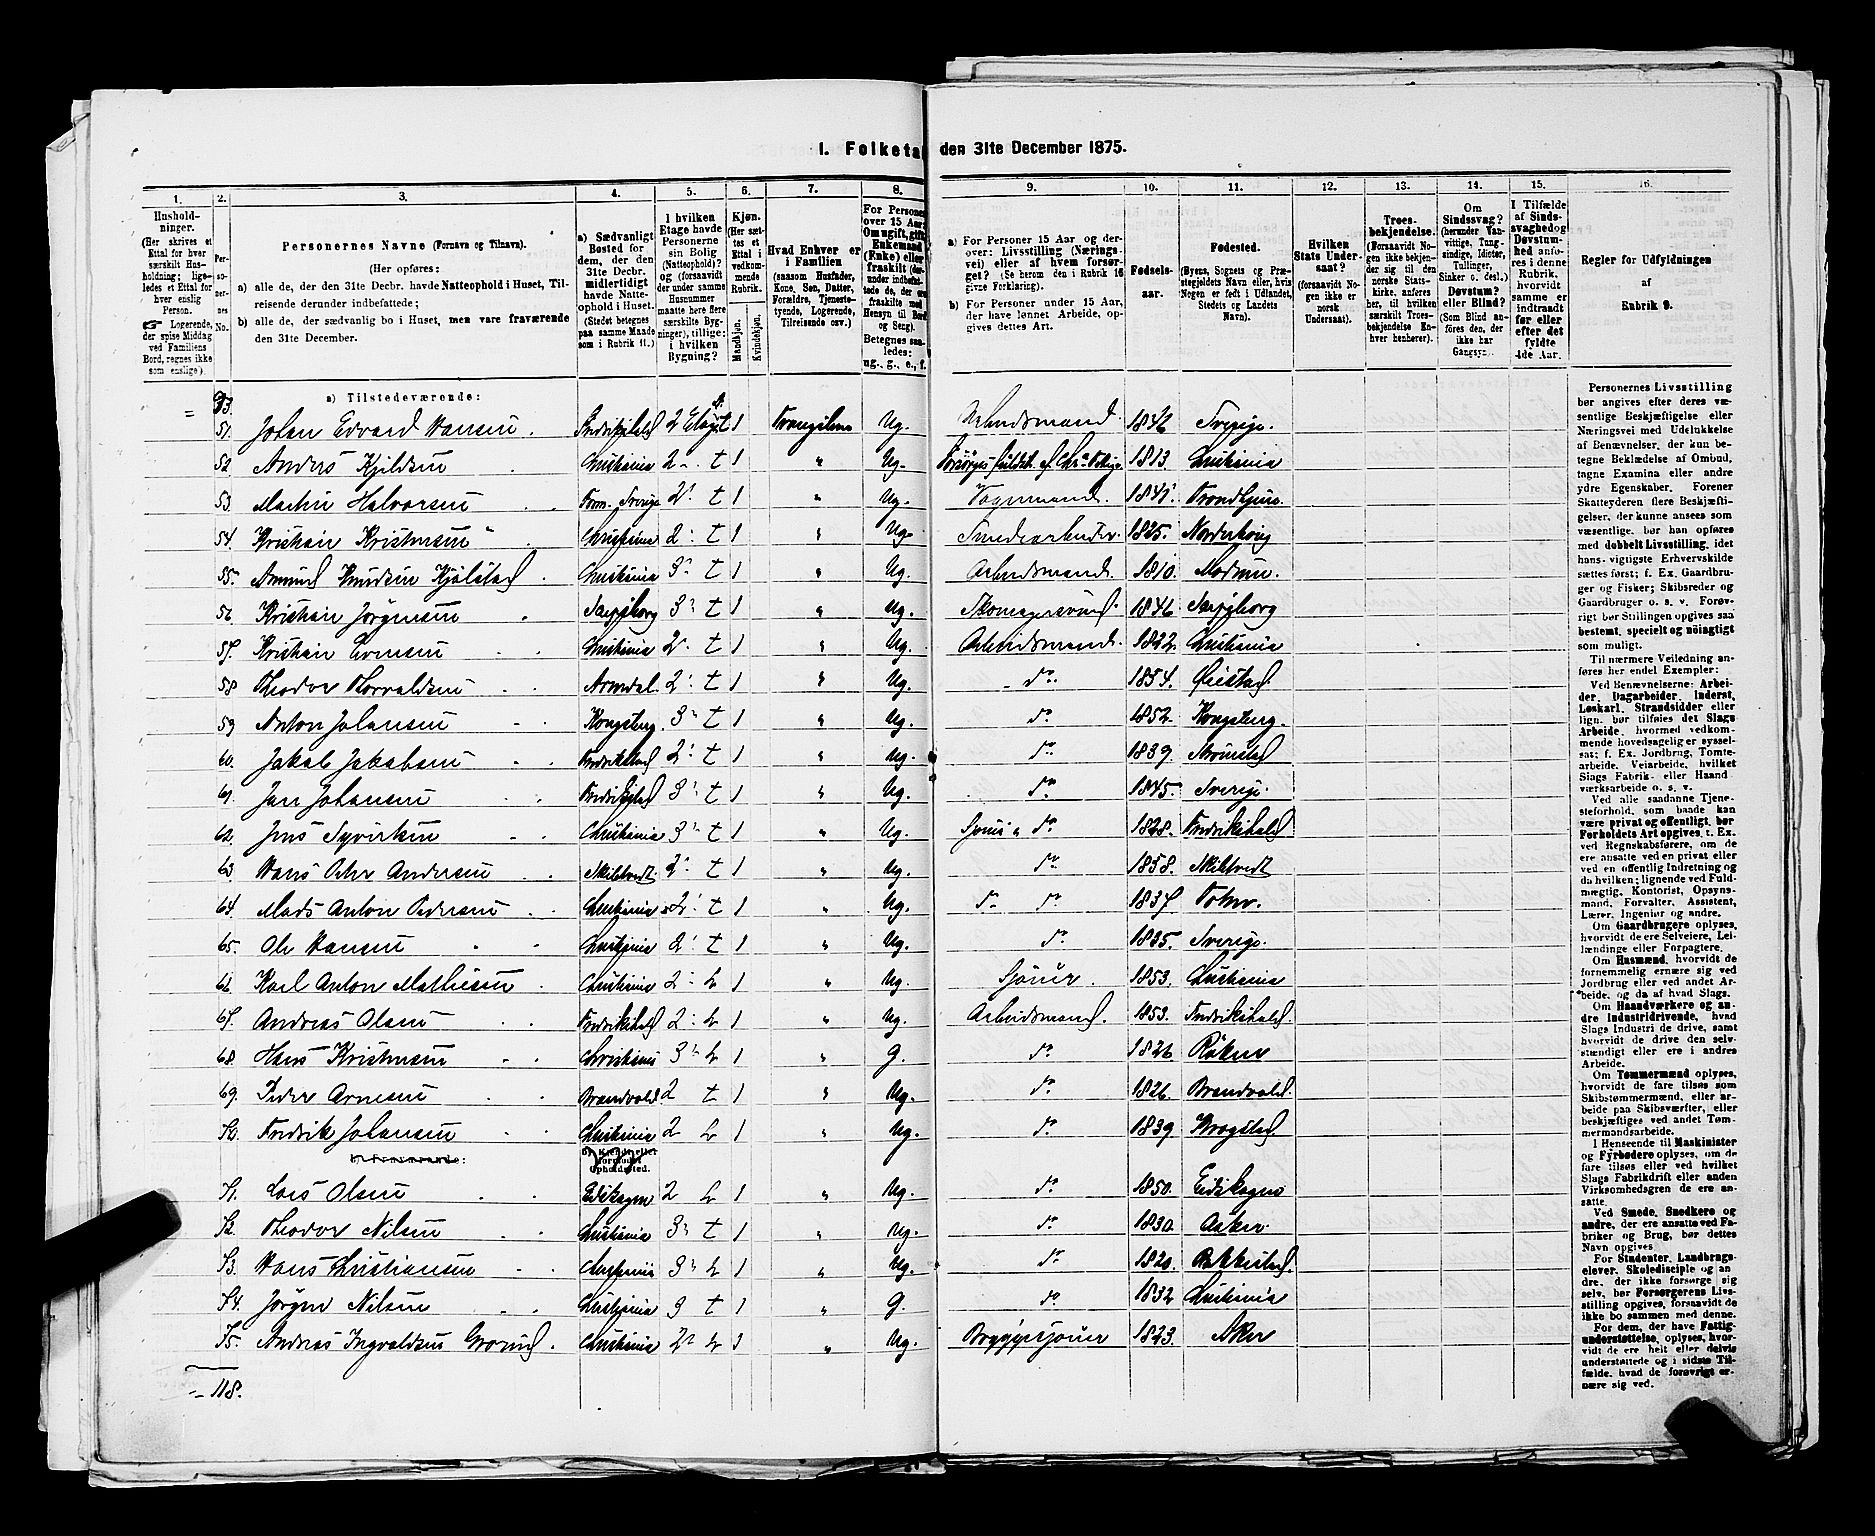 I. Folketal den 31te December 1875.
1. 2. 3. 4. 5. 6. 7. 8. 9. 10. 11. 12. 13. 14. 15. 16.
Hushold-
ninger.
(Her skrives et
Ettal for hver
særskilt Hus-
holdning; lige-
ledes et Ettal for
hver enslig
Person.
☞ Logerende,
der spise Middag
ved Familiens
Bord, regnes ikke
som enslige).
Per-
so-
ner-
nes
No.
Personernes Navne (Fornavn og Tilnavn).
(Her opføres:
a) alle de, der den 31te Decbr. havde Natteophold i Huset, Til-
reisende derunder indbefattede;
b) alle de, der sædvanlig bo i Huset, men vare fraværende
den 31te December.
a) Sædvanligt
Bosted for
dem, der den
31te Decbr.
midlertidigt
havde Natte-
ophold i Huset.
(Stedet betegnes
paa samme Maade
som i Rubrik 11.)
I hvilken
Etage havde
Personerne
sin Bolig
(Natteophold)?
og (forsaavidt
der under samme
Husnummer
maatte høre flere
særskilte Byg-
ninger), tillige:
i hvilken
Bygning?
Kjøn.
(Her sæt-
tes et
Ettal i
vedkom-
mende
Rubrik.
Mandkjøn.
Kvindekjøn.
Hvad Enhver er
i Familien
(saasom Husfader,
Kone, Søn, Datter,
Forældre, Tjeneste-
tyende, Logerende,
Tilreisende osv.)
For Personer
over 15 Aar:
Om ugift, gift,
Enkemand
(Enke) eller
fraskilt
Betegnes saa-
ledes:
ug., g., e., f.
a) For Personer 15 Aar og der-
over: Livsstilling (Nærings-
vei) eller af hvem forsør-
get? (Se herom den i Rubrik 16
givne Forklaring).
b) For Personer under 15 Aar,
der have lønnet Arbeide, op-
gives dettes Art.
Fødsels-
aar.
Fødested.
(Byens, Sognets og Præ-
stegjeldets Navn eller, hvis
Nogen er født i Udlandet,
Stedets og Landets
Navn).
Hvilken
Stats Under-
saat?
(forsaavidt No-
gen ikke er
norsk
Undersaat).
Troes-
bekjendelse.
(Forsaavidt No-
gen ikke bekjen-
der sig til den
norske Stats-
kirke, anføres
her, til hvilken
særskilt Troes-
bekjendelse En-
hver henhører).
Om
Sindssvag?
(herunder Van-
vittige, Tung-
sindige, Idioter,
Tullinger,
Sinker o. desl.)
Døvstum?
eller Blind?
(Som Blind an-
føres den, der
ikke har
Gangsyn).
I Tilfælde
af Sinds-
svaghed og
Døvstum-
hed anfø-
res i denne
Rubrik,
hvorvidt
samme er
indtraadt
før eller
efter det
fyldte
4de Aar.
Regler for Udfyldningen
af
Rubrik 9.
a) Tilstedeværende:
51. Johan Edvard Hansen . 2 Etage t 1 Ug. 1846 Sverige.
52 Anders Kjeldsen Christiania 2 t 1 " Ug. 1813. Christiania
53. Martin Halvorsen 2 t 1 " Ug. Vognmand. 1841 Trondhjem.
54. Kristian Kristensen Christiania 2 t 1 " Ug. Smedearbeider. 1825. Norderhov
55. Amund Knudsen Kjølstad Christiania 3 t 1 " Ug. Arbeidsmand. 1810. Modum.
56 Kristian Jørgensen Sarpsborg 3 t 1 " Ug. Skomagersvend. 1846 Sarpsborg
57. Kristian Evensen Christiania 2 t 1 " Ug. Arbeidsmand. 1822. Christiania
58 Theodor Thorvaldsen Arendal. 2 t 1 " Ug. do. 1854. Øiestad
59 Anton Johansen Kongsberg. 3 t 1 " Ug. do. 1852. Kongsberg.
60. Jakob Jakobsen Fredrikstad 2 t 1 " Ug. do. 1839. Strømstad
61. Jan Johansen Fredrikstad 3 t 1 " Ug. do. 1845. Sverige.
62. Jens Syvertsen Christiania 3 t 1 " Ug. do. 1828. Fredrikshald
63 Hans Peder Andersen Skibtvedt 2 t 1 " Ug. do. 1858. Skibtvedt
64. Mads Anton Pedersen Christiania 2 t 1 " Ug. do. 1837 Toten.
65. Ole Hansen Christiania 2 t 1 " Ug. do. 1835. Sverige.
66. Karl Anton Mathisen Christiania 2 1 " Ug. Sjouer. 1853. Christiania
67. Andreas Olsen Fredrikshald 2 1 " Ug. Arbeidsmand. 1853. Fredrikshald.
68. Hans Kristensen Christiania 3 1 " g. do. 1826 Røken
69. Peder Arnesen Brandvold. 2 t 1 " Ug. do. 1826. Brandvold.
70. Fredrik Johansen Christiania 2 1 " Ug. do. 1839. Krogstad.
b) Fraværende:
b) Kjendt eller
formodet
Opholdssted.
71. Lars Olsen Eidskogen 2 1 " Ug. do. 1850. Eidskogen
72. Theodor Nilsen Christiania 3 t 1 " Ug. do. 1830. Asker.
73. Hans Christiansen Christiania 3 1 " Ug. do. 1820. Rakkestad.
74. Jørgen Nilsen Christiania 3 t 1 " g. do. 1832 Christiania
75. Andreas Ingvaldsen Grorud. Christiania 2 1 " Ug. Bryggesjouer 1823. Aker
118.
Personernes Livsstilling
bør angives efter deres væ-
sentlige Beskjæftigelse eller
Næringsvei med Udelukkelse
af Benævnelser, der kun be-
tegne Beklædelse af Ombud,
tagne Examina eller andre
ydre Egenskaber. Forener
Skatteyderen flere Beskjæfti-
gelser, der kunne ansees som
væsentlige, bør han opføres
med dobbelt Livsstilling, idet
hans vigtigste Erhvervskilde
sættes først; f. Ex. Gaardbru-
ger og Fisker; Skibsreder og
Gaardbruger o. s. v. Forøv-
rigt bør Stillingen opgives saa
bestemt, specielt og nøiagtigt
som muligt.
Til nærmere Veiledning an-
føres her endel Exempler:
Ved Benævnelserne: Arbei-
der, Dagarbeider, Inderst,
Løskarl, Strandsidder eller
lign. bør tilføies det Slags
Arbeide, hvormed vedkom-
mende hovedsagelig er syssel-
sat; f. Ex. Jordbrug, Tomte-
arbeide, Veiarbeide, hvilket
Slags Fabrik- eller Haand-
værksarbeide o. s. v.
Ved alle saadanne Tjene-
steforhold, som baade kan
være privat og offentligt, bør
Forholdets Art opgives, t. Ex.
ved Regnskabsførere, om de
ere ansatte ved en privat eller
ved en offentlig Indretning og
da hvilken; lignende ved Fuld-
mægtig, Kontorist, Opsyns-
mand, Forvalter, Assistent,
Lærer, Ingeniør og andre.
Om Gaardbrugere oplyses,
hvorvidt de ere Selveiere, Lei-
lændinge eller Forpagtere.
Om Husmænd, hvorvidt de
fornemmelig ernære sig ved
Jordbrug eller ved andet Ar-
beide, og da af hvad Slags.
Om Haandværkere og an-
dre Industridrivende, hvad
Slags Industri de drive, samt
hvorvidt de drive den selv-
stændigt eller ere i andres
Arbeide.
Om Tømmermænd oplyses,
hvorvidt de fare tilsøs som
Skibstømmermænd, eller ar-
beide paa Skibsværfter, eller
beskjæftiges ved andet Tøm-
mermandsarbeide.
I Henseende til Maskinister
og Fyrbødere oplyses, om de
fare tilsøs eller ved hvilket
Slags Fabrikdrift eller anden
Virksomhedsgren de ere an-
satte.
Ved Smede, Snedkere og
andre, der ere ansatte ved Fa-
briker og Brug, bør dettes
Navn opgives.
For Studenter, Landbrugs-
elever, Skoledisciple og an-
dre, der ikke forsørge sig
selv, bør Forsørgerens Livs-
stilling opgives, forsaavidt de
ikke bo sammen med denne.
For dem, der have Fattig-
understøttelse, oplyses, hvor-
vidt de ere helt eller delvis
understøttede og i sidste Til-
fælde, hvad de forøvrigt er-
nære sig ved.